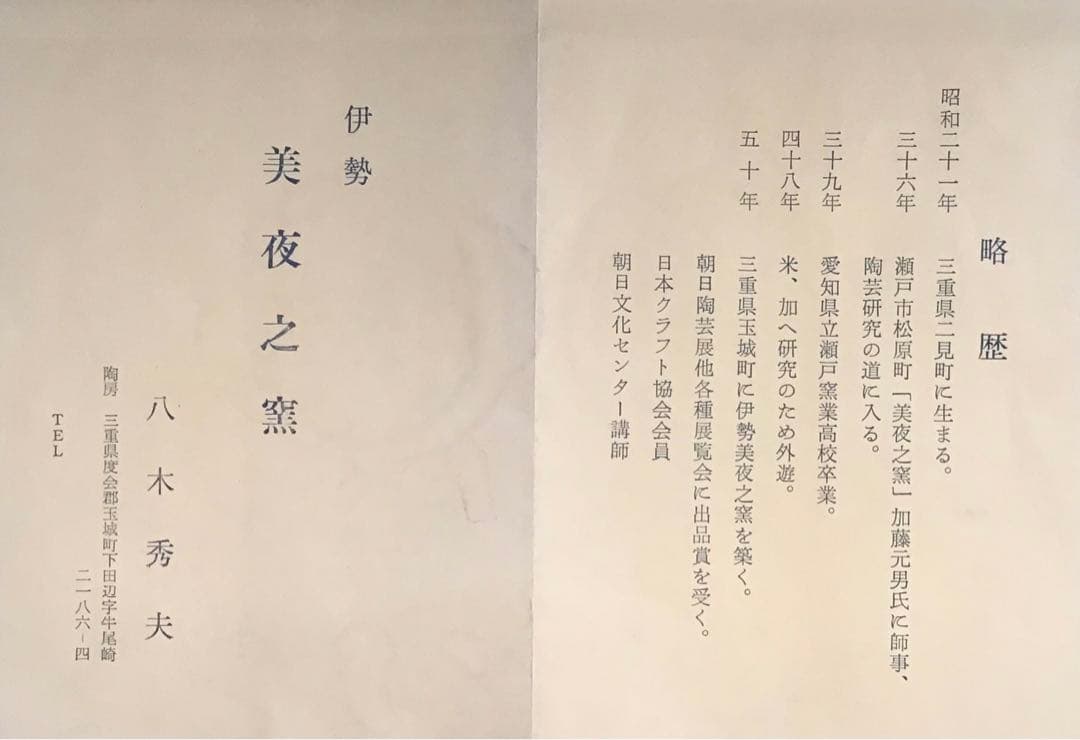 略歴
昭和二十一年 三重県二見町に生まる。
三十六年 瀬戸市松原町「美夜之窯」加藤元男氏に師事、
陶芸研究の道に入る。
三十九年 愛知県立瀬戸窯業高校卒業。
四十八年 米、加へ研究のため外遊。
五十年 三重県玉城町に伊勢美夜之窯を築く。
朝日陶芸展他各種展覧会に出品賞を受く。
日本クラフト協会会員
朝日文化センター講師
伊勢
美夜之窯
八木秀夫
陶房 三重県度会郡玉城町下田辺字牛尾崎
二一八六-四
TEL